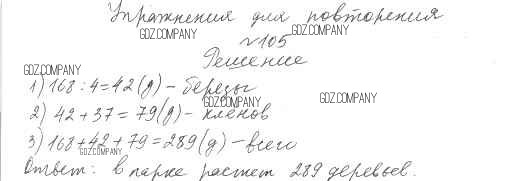 Упражнения для повторения
GDZ.COMPANY
GDZ.COMPANY
№105
Решение
GDZ.COMPANY
1) 168 : 4 = 42 (д) - березы
GDZ.COMPANY
GDZ.COMPANY
2) 42 + 37 = 79 (д) - кленов
3) 168 + 42 + 79 = 289 (д) - всего
GDZ.COMPANY
Ответ: в парке растет 289 деревьев.